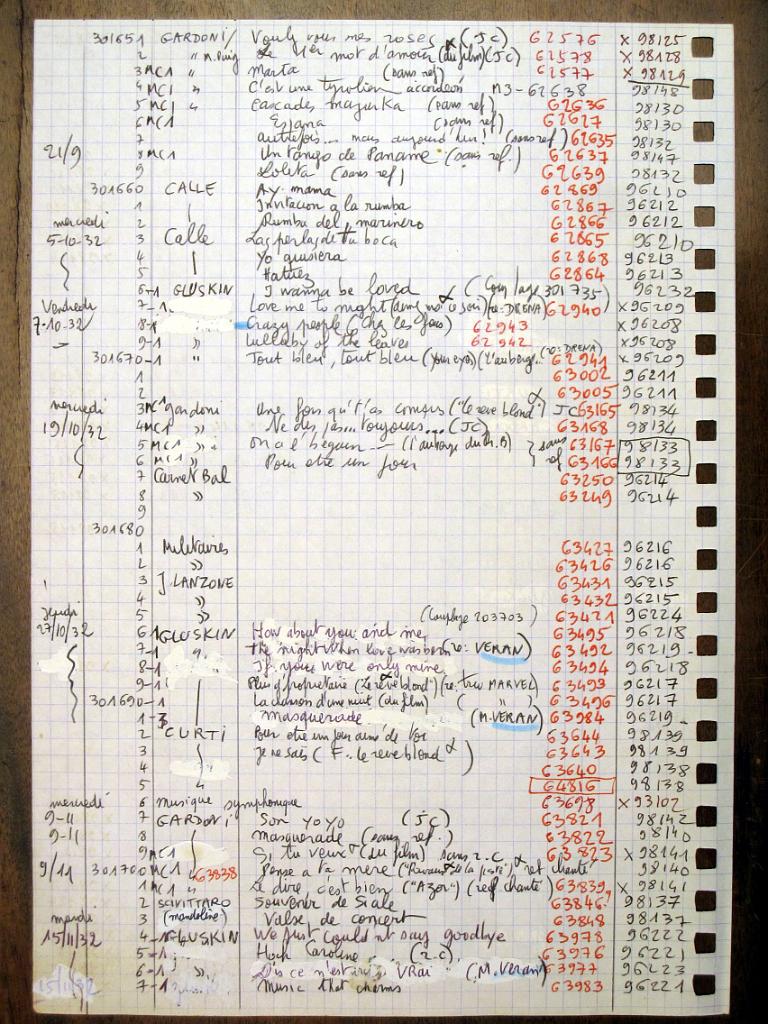 301651 GARDONI/ Voulez vous mes roses (JC) 62576 x 98125
2 " M. Puig Le 1er mot d'amour (du film) (JC) 62578 x 98128
3 MC1 " Marta (sans ref) 62577 x 98129
4 MC1 " C'est une tyrolien accordeon M3-62638 98148
5 MC1 " Cascades mazurka (sans ref) 62636 98130
6 MC1 (sans ref) 62627 98130
7 autrefois... mais aujourd'hui! (sans ref) 62635 98132
21/9 8 MC1 Un tango de Paname (sans ref.) 62637 98147
9 Lolita (sans ref) 62639 98132
301660 CALLE Ay mama 62869 96210
1 Invitacion a la rumba 62867 96212
mercredi 2 Rumba del marinero 62866 96212
5-10-32 3 Calle Las perlas de tu boca 62865 96210
4 Yo quisiera 62868 96213
5 62864 96213
6-1 GLUSKIN I wanna be loved (Couplage 301735) 96232
Vendredi 7-1 Love me to night (re: DRENA) 62940 x 96209
7-10-32 8-1 Crazy people (Chez les fous) 62943 x 96208
9-1 " Lullaby of the leaves 62942 x 96208
301670-1 " Tout bleu, tout bleu (your eyes) (l'auberge.. (re: DRENA) 62941 x 96209
1 63002 96211
2 63005 96211
mercredi 3 MC1 gardoni Une fois qu't'as compris ("le reve blond") JC 63165 98134
19/10/32 4 MC1 " Ne dis pas toujours... (JC) 63168 98134
5 MC1 " on a l'béguin (l'auberge du Ch. B) } sans 63167 98133
6 MC1 " Pour etre un jour ref 63166 98133
7 Carnet Bal 63250 96214
8 " 63249 96214
9
301680
1 Militaires 63427 96216
2 " 63426 96216
3 J. LANZONE 63431 96215
4 " 63432 96215
jeudi 5 " (Couplage 203703) 63421 96224
27/10/32 6-1 GLUSKIN How about you and me 63495 96218
7-1 " The night when love was born (re: VERAN) 63492 96219
8-1 If you were only mine 63494 96218
9-1 Plus d'proprietaire ("Le reve blond") (re: MARVEL) 63493 96217
301690-1 La chanson d'une nuit (du film) ( " " ) 63496 96217
1-3 masquerade (M. VERAN) 63984 96219
2 CURTI Pour etre un jour aimé de toi 63644 98139
3 Je ne sais (F.. le reve blond) 63643 98139
4 63640 98138
5 " 64816 98138
mercredi 6 musique symphonique 63698 x 93102
9-11 7 GARDONI Son yoyo (JC) 63821 98142
9-11 8 masquerade (sans ref.) 63822 98140
9 MC1 Si tu veux (du film) sans r.c. 63823 x 98141
9/11 301700 MC1 63838 Pense a ta mere ref chanté 98140
1 MC1 " Le dire, c'est bien ("Azor") (ref chanté) 63839 x 98141
2 SCIVITTARO Souvenir de Sicile 63846 98137
mardi 3 (mandoline) Valse de concert 63848 98137
15/11/32 4-1 GLUSKIN We just couldn't say goodbye 63978 96222
5-1 Caroline (r.c) 63976 96221
6-1 " Dis ce n'est pas vrai (M. Veran) 63977 96223
15/11/32 7-1 Music that charms 63983 96221